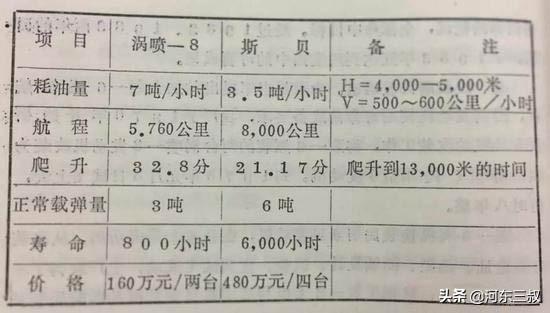 项目 涡喷—8 斯贝 备注
耗油量 7吨/小时 3.5吨/小时 H=4,000—5,000米
V=500～600公里/小时
航程 5.760公里 8,000公里
爬升 32.8分 21.17分 爬升到13,000米的时间
正常载弹量 3吨 6吨
寿命 800小时 6,000小时
价格 160万元/两台 480万元/四台
头条 @河东三叔